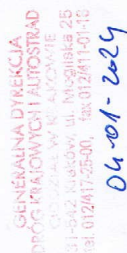 GENERALNA DYREKCJA
DRÓG KRAJOWYCH I AUTOSTRAD
ODDZIAŁ W KRAKOWIE
31-542 Kraków, ul. Mogilska 25
tel. 012/417-25-00, fax 012/411-01-18
04-01-2024